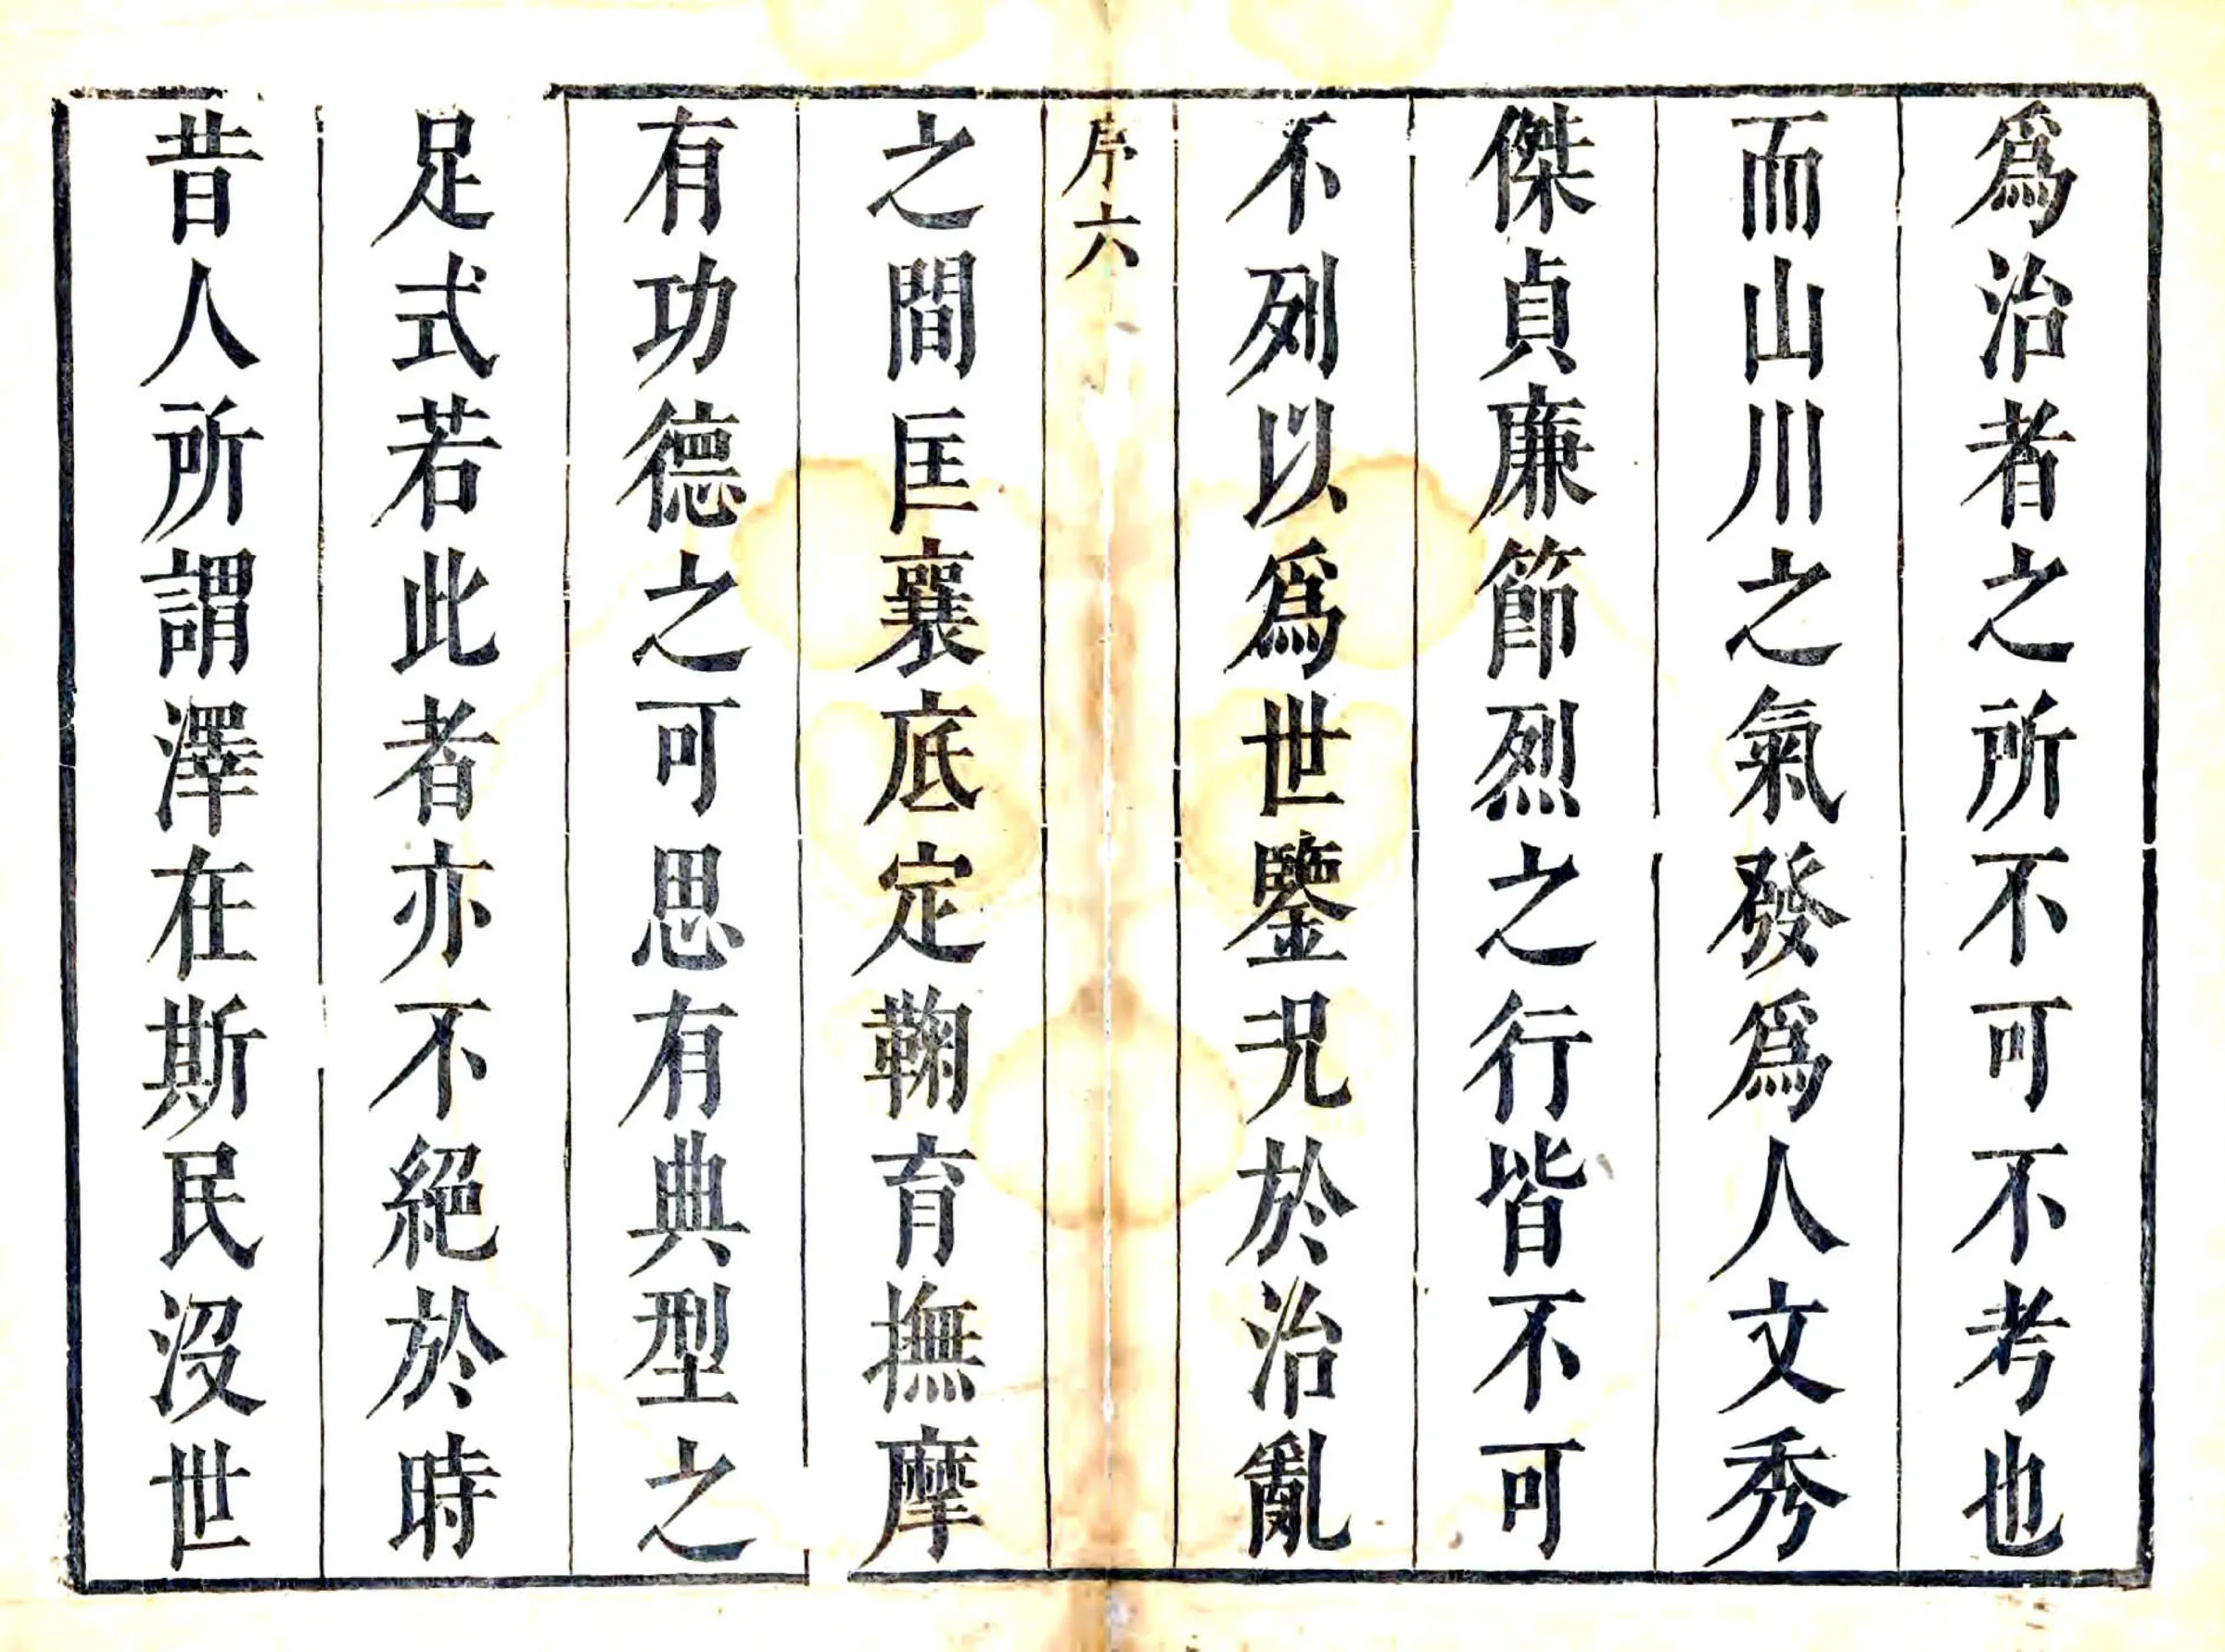 爲治者之所不可不考也
而山川之氣發爲人文秀
傑貞廉節烈之行皆不可
不列以爲世鑒況於治亂
序六
之間匡襄底定鞠育撫摩
有功德之可思有典型之
足式若此者亦不絕於時
昔人所謂澤在斯民沒世